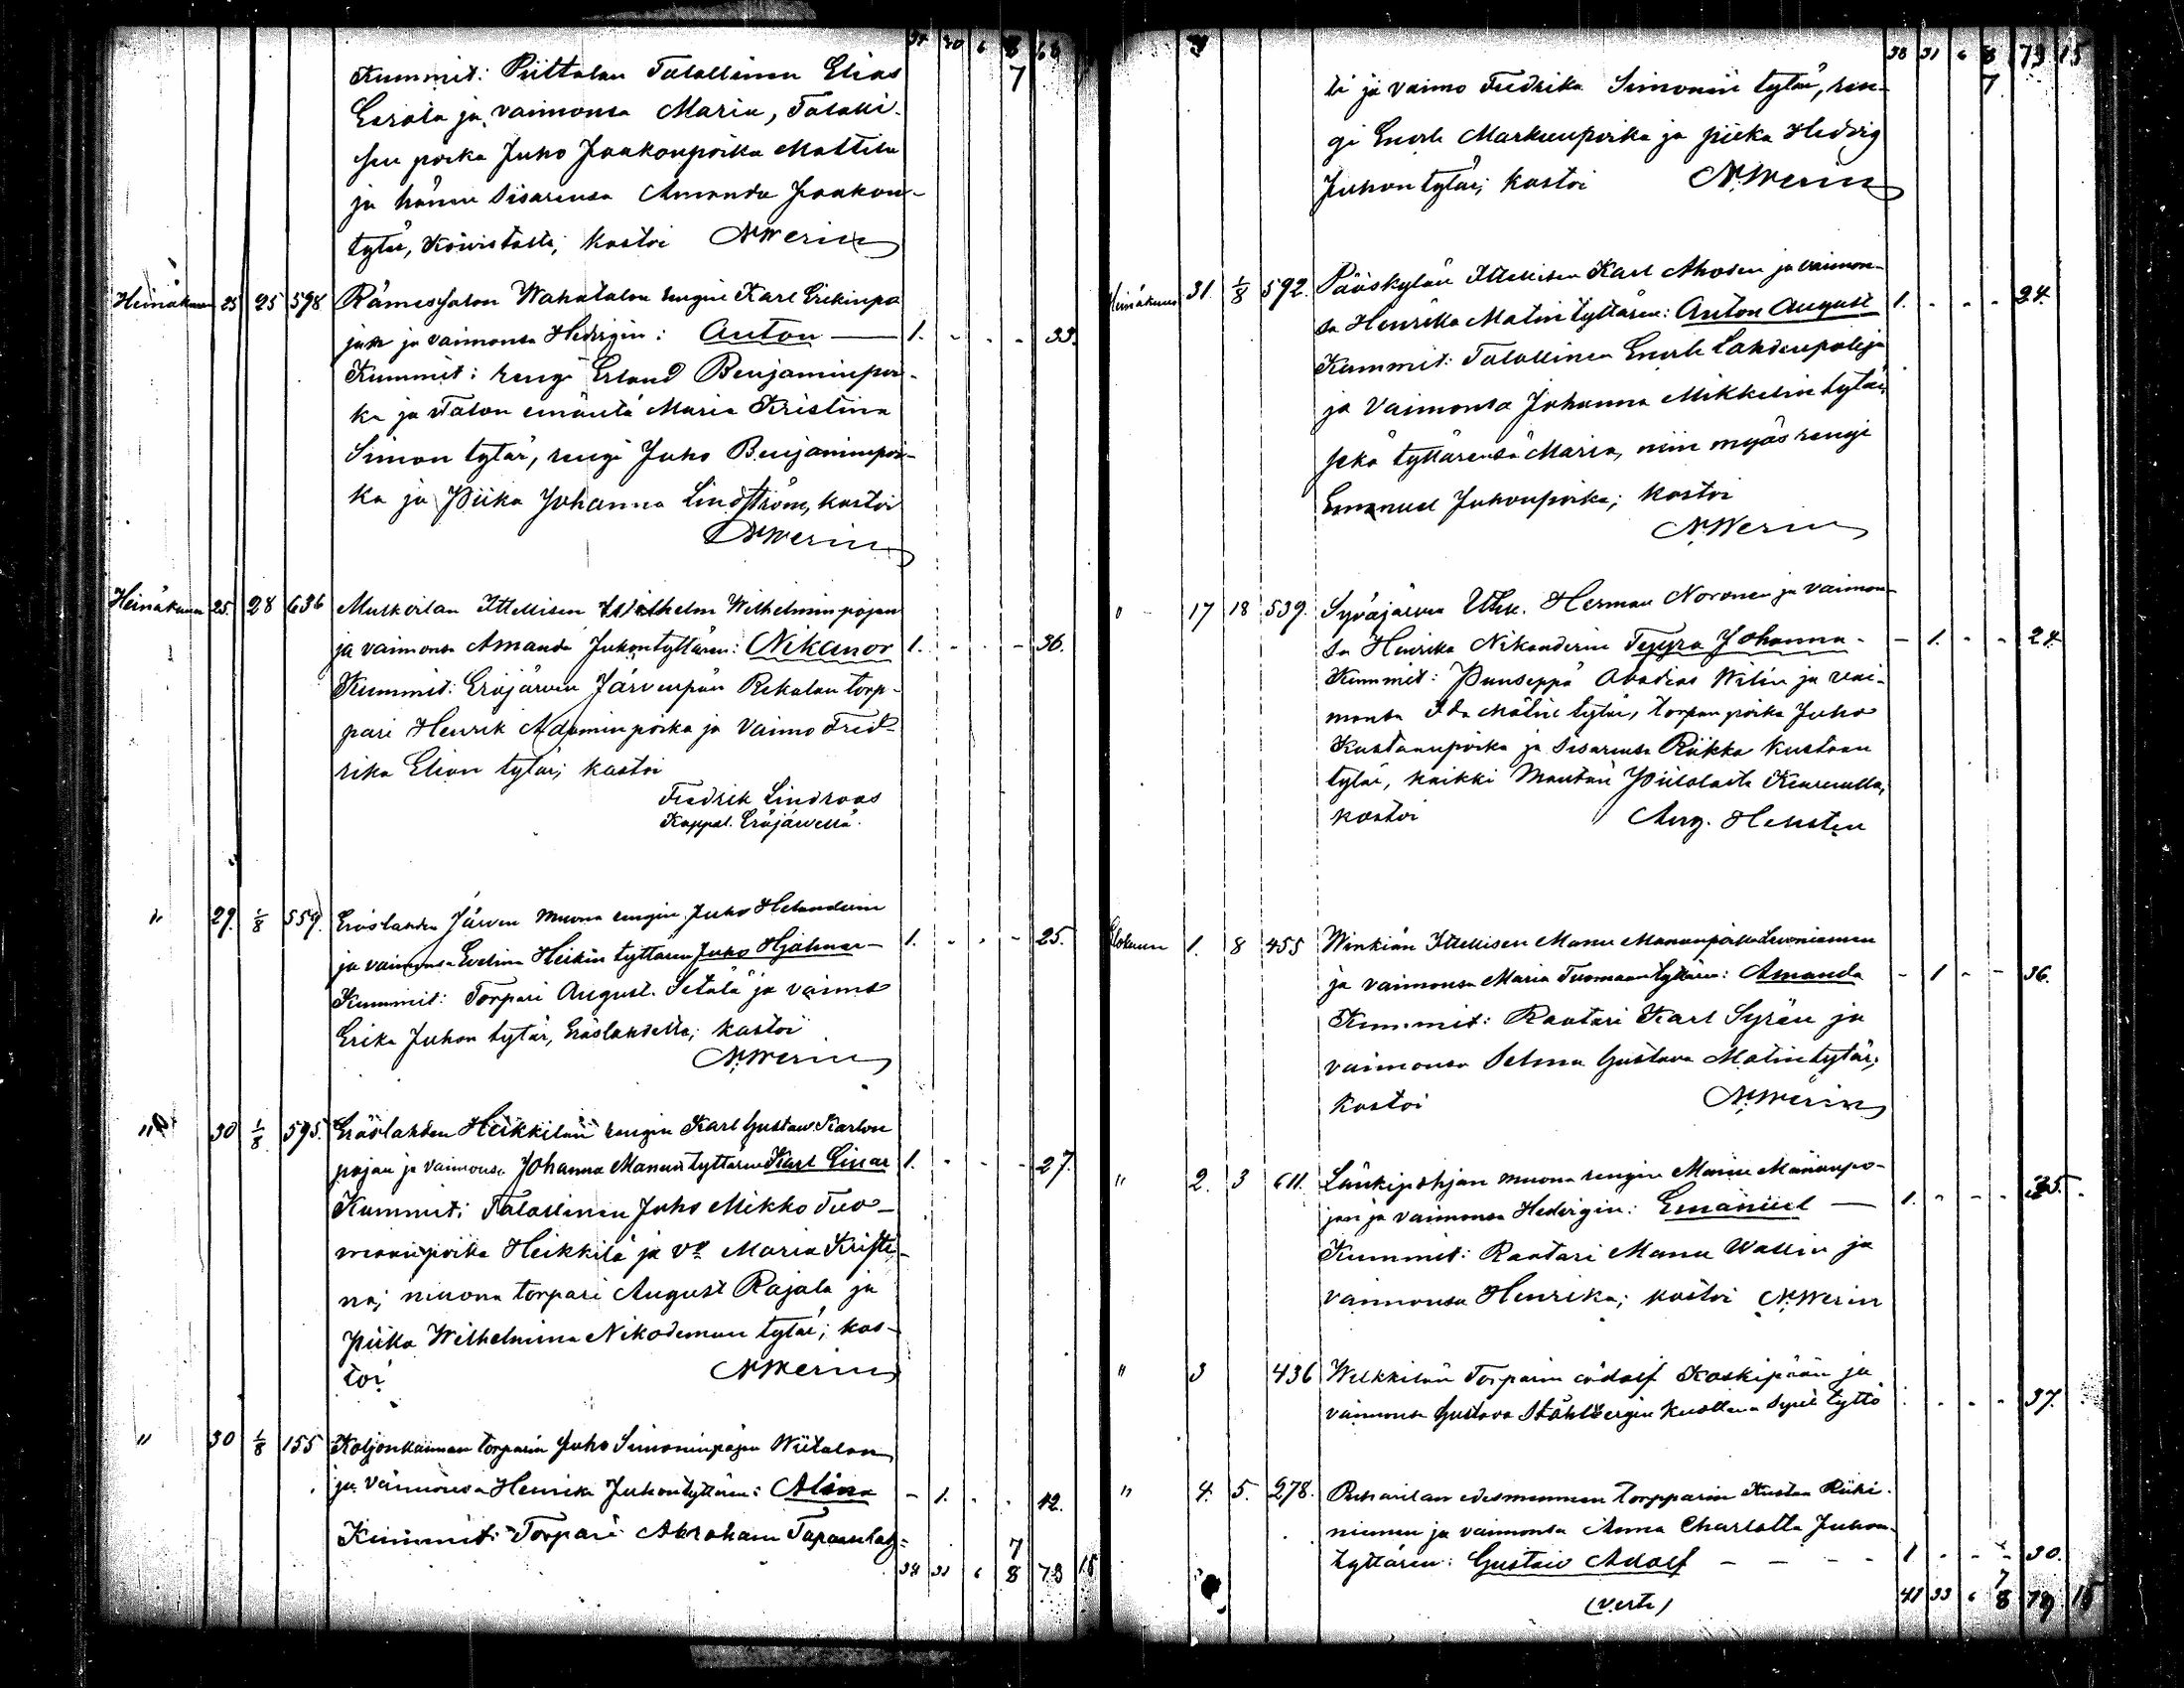 34 30 6 8 68
7
Kummit: Piittalan Talollinen Elias
Eerola ja vaimonsa Maria, Talolli-
sen poika Juho Jaakonpoika Mattila
ja hänen sisarensa Amanda Jaakon-
tytär, Koivistolta; kastoi N. Werin
Heinäkuun 25 25 598 Rämessalon Wahatalon rengin Karl Erikinpo
jan ja vaimonsa Hedvigin: Anton 1. - - - 33.
Kummit: rengi Erland Benjaminpoi-
ka ja Talon emäntä Maria Kristina
Simon tytär, rengi Juho Benjaminpoi-
ka ja Piika Johanna Lindström, kastoi
N. Werin
Heinäkuun 25. 28 636 Mulkoilan Ittellisen Wilhelm Wilhelminpojan
ja vaimonsa Amanda Juhontyttären: Nikanor 1. - - - 36.
Kummit: Eräjärven Järvenpään Rekolan torp-
pari Henrik Adaminpoika ja Vaimo Fred-
rika Elian tytär; kastoi
Fredrik Lindroos
Kappal. Eräjärvellä.
" 29. 1/8 559. Eräslahden Järven muona rengin Juho Helanderin
ja vaimonsa Evelina Heikin tyttären Juho Hjalmar 1. - - - 25.
Kummit: Torpari August Setälä ja vaimo
Erika Juhon tytär, Eräslahdelta; kastoi
N. Werin
" 30 1/8 595. Eräslahden Heikkilän rengin Karl Gustav Karlon
pojan ja vaimonsa Johanna Manuntyttären Karl Einar 1. - - - 27.
Kummit: Talollinen Juho Mikko Tuo-
maanpoika Heikkilä ja vo Maria Kristi-
na; muona torpari August Rajala ja
piika Wilhelmina Nikodemun tytär; kas-
toi N. Werin
" 30 1/8 155 Koljonkannan torparin Juho Simoninpojan Wiitalan
ja vaimonsa Henrika Juhontyttären: Alina - 1. - - 42.
Kummit: Torpari Abraham
7
38 31 6 8 73 15
38 31 6 8 73 15
7
ti ja vaimo Fredrika Simonin tytär, ren-
gi Enok Markunpoika ja piika Hedvig
Juhon tytär; kastoi N. Werin
Heinäkuun 31. 1/8 592. Pääskylän Ittellisen Karl Ahosen ja vaimon-
sa Henrika Matin tyttären: Anton August 1. - - - 24.
Kummit: Talollinen Enok Lahdenpohja
ja Vaimonsa Johanna Mikkelin tytär,
sekä tyttärensä Maria, niin myös rengi
Emanuel Juhonpoika; kastoi
N. Werin
" 17 18 539. Syväjärven Ittel. Herman Norosen ja vaimon-
sa Henrika Nikanderin Tyyra Johanna - - 1. - - 24.
Kummit: Puuseppä Abadias Wilén ja vai-
monsa Ida Matin tytär, torpan poika Juho
Kustaanpoika ja sisarensa Riikka Kustaan
tytär, kaikki
kastoi Aug. Hellstén
Elokuun 1. 8 455 Winkiän Ittellisen Manu Manunpoika Levoniemen
ja vaimonsa Maria Tuomaan tyttären: Amanda - 1 - - 36.
Kummit: Raatari Karl Syrén ja
vaimonsa Selma Gustava Matin tytär;
kastoi N. Werin
" 2. 3 611. Länkipohjan muona rengin Manu Manunpo-
jan ja vaimonsa Hedvigin: Emanuel 1. - - - 35.
Kummit: Raatari Manu Wallin ja
vaimonsa Henrika; kastoi N. Werin
" 3 436 Welkkilän Torparin Adolf Koskipään ja
vaimonsa Gustava Ståhlbergin kuollena synt. tyttö - - - 37.
" 4. 5. 278. Puharilan edesmennen torpparin Kustaa Riihi-
niemen ja vaimonsa Anna Charlotta Juhon-
tyttären: Gustav Adolf - - - - 1 - - - 30.
(verte)
7
41 33 6 8 79 15